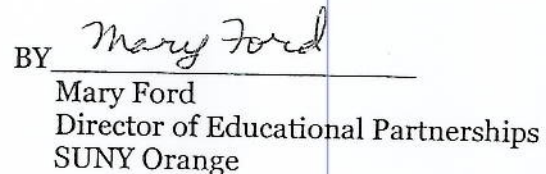 BY Mary Ford
Mary Ford
Director of Educational Partnerships
SUNY Orange